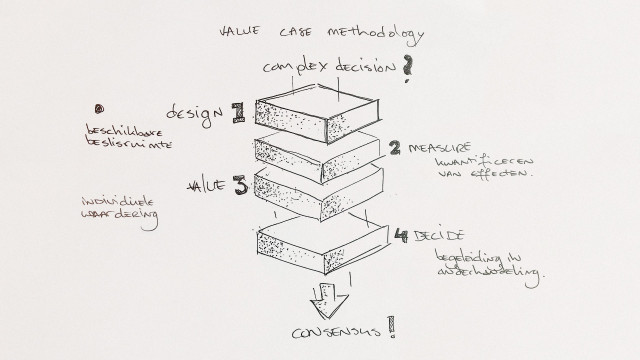 VALUE CASE methodology
complex decision ?
design 1
beschikbare
beslisruimte
2 MEASURE
kwantificeren
van effecten.
VALUE 3
individuele
waardering
4 DECIDE
begeleiding in
onderhandeling.
CONSENSUS!